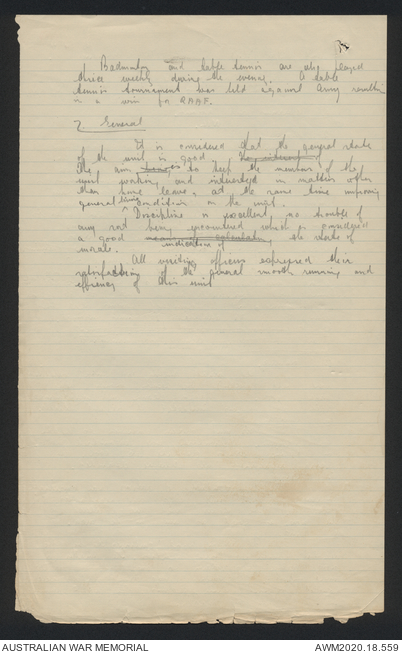 Badminton and table tennis are also played
thrice weekly during the evening. A table
tennis tournament was held against Army resulting
in a win for RAAF.
7 General
It is considered that the general state
of the unit is good
the aim to keep the members of this
unit working and interested in matters other
than home leave & at the same time improving
general living conditions on the unit.
Discipline is excellent, no trouble of
any sort being encountered which is considered
a good indication of the state of
morale.
All visiting officers expressed their
satisfaction of the general smooth running and
efficiency of this unit
AUSTRALIAN WAR MEMORIAL
AWM2020.18.559